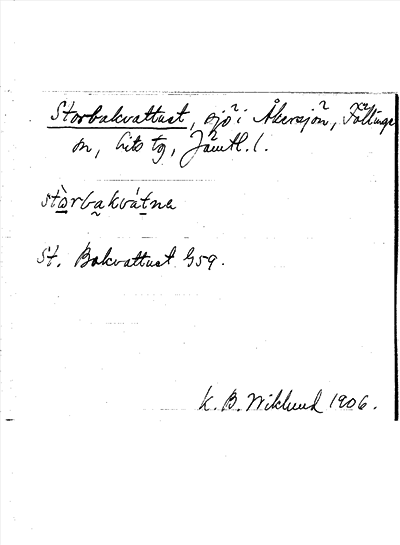 Storbakvattnet, sjö i Åkersjön, Föllinge
sn, Lits tg, Jämtl. l.
stàrbakvátna
St. Bakvattnet G59.
K. B. Wiklund 1906.